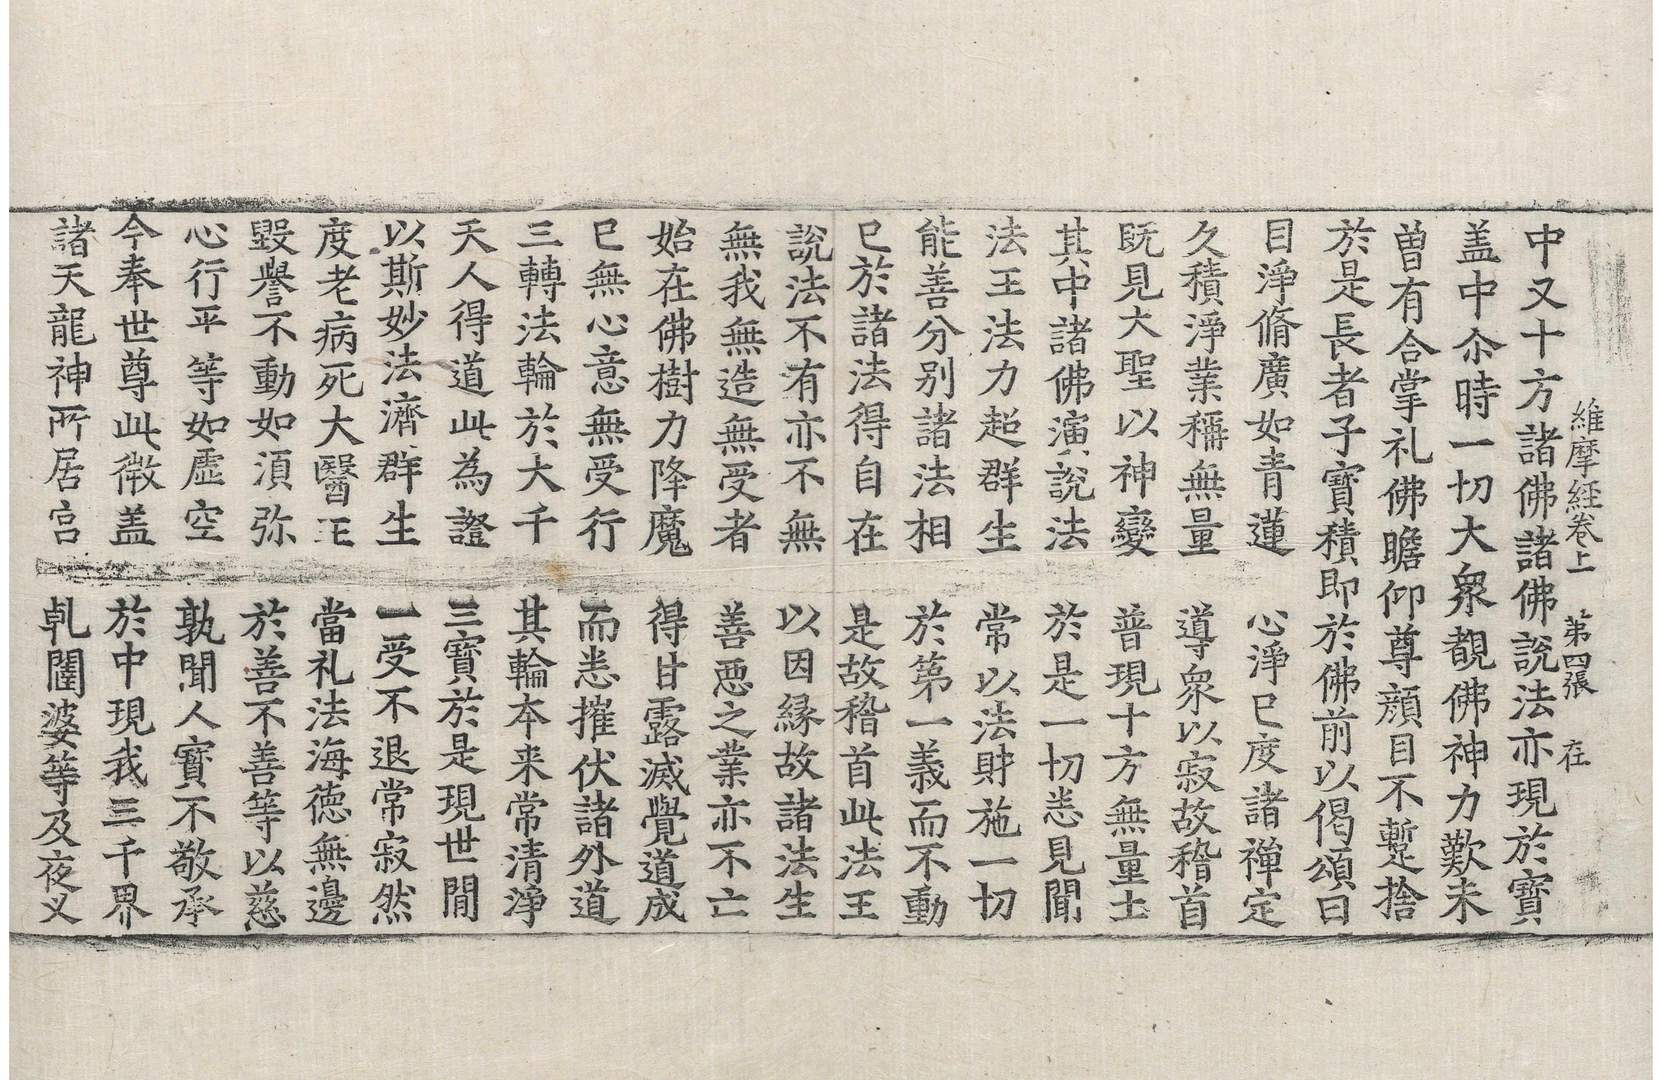 維摩經卷上 第四張 在
中又十方諸佛諸佛說法亦現於寶
盖中尒時一切大衆覩佛神力歎未
曽有合掌礼佛瞻仰尊顔目不蹔捨
於是長者子寶積即於佛前以偈頌曰
目淨脩廣如青蓮 心淨已度諸禪定
久積淨業稱無量 導衆以寂故稽首
旣見大聖以神變 普現十方無量土
其中諸佛演說法 於是一切悉見聞
法王法力超群生 常以法財施一切
能善分别諸法相 於第一義而不動
已於諸法得自在 是故稽首此法王
說法不有亦不無 以因緣故諸法生
無我無造無受者 善惡之業亦不亡
始在佛樹力降魔 得甘露滅覺道成
已無心意無受行 而悉摧伏諸外道
三轉法輪於大千 其輪本来常清淨
天人得道此為證 三寶於是現世間
以斯妙法濟群生 一受不退常寂然
度老病死大醫王 當礼法海德無邊
毀譽不動如須弥 於善不善等以慈
心行平等如虛空 孰聞人寶不敬承
今奉世尊此微盖 於中現我三千界
諸天龍神所居宫 乹闥婆等及夜叉